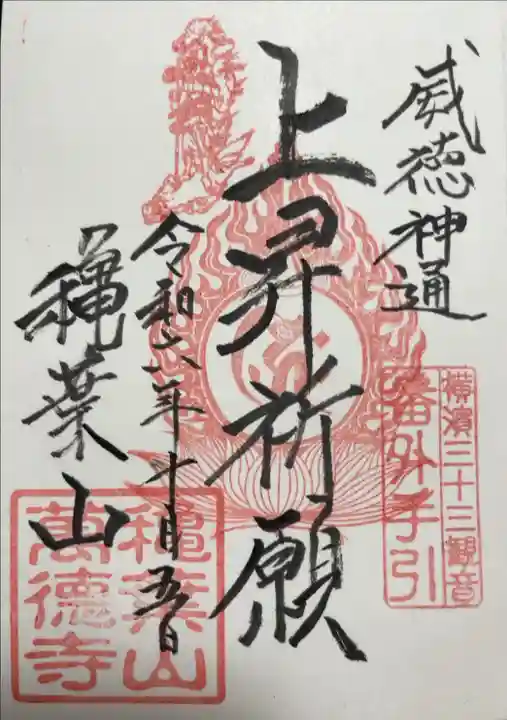 威徳神通
横濱三十三観音
番外手引
上昇祈願
令和六年十月五日
龝葉山
龝葉山
萬德寺